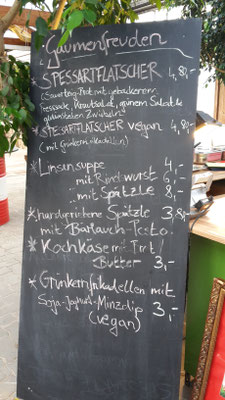 Gaumenfreuden
* SPESSARTFLATSCHER 4,80,-
(Sauerteig-Brot mit gebackenem
Pressack, Krautsalat, grünem Salat &
gedünsteten Zwiebeln)
* SPESSARTFLATSCHER vegan 4,80,-
(mit Grünkernfrikadellen)
* Linsensuppe 4,-
..mit Rindswurst 6,-
..mit Spätzle 8,-
* handgeriebene Spätzle 3,80,-
mit Bärlauch-Pesto
* Kochkäse mit Brot/
Butter 3,-
* Grünkernfrikadellen mit
Soja-Joghurt-Minzdip
(vegan) 3,-